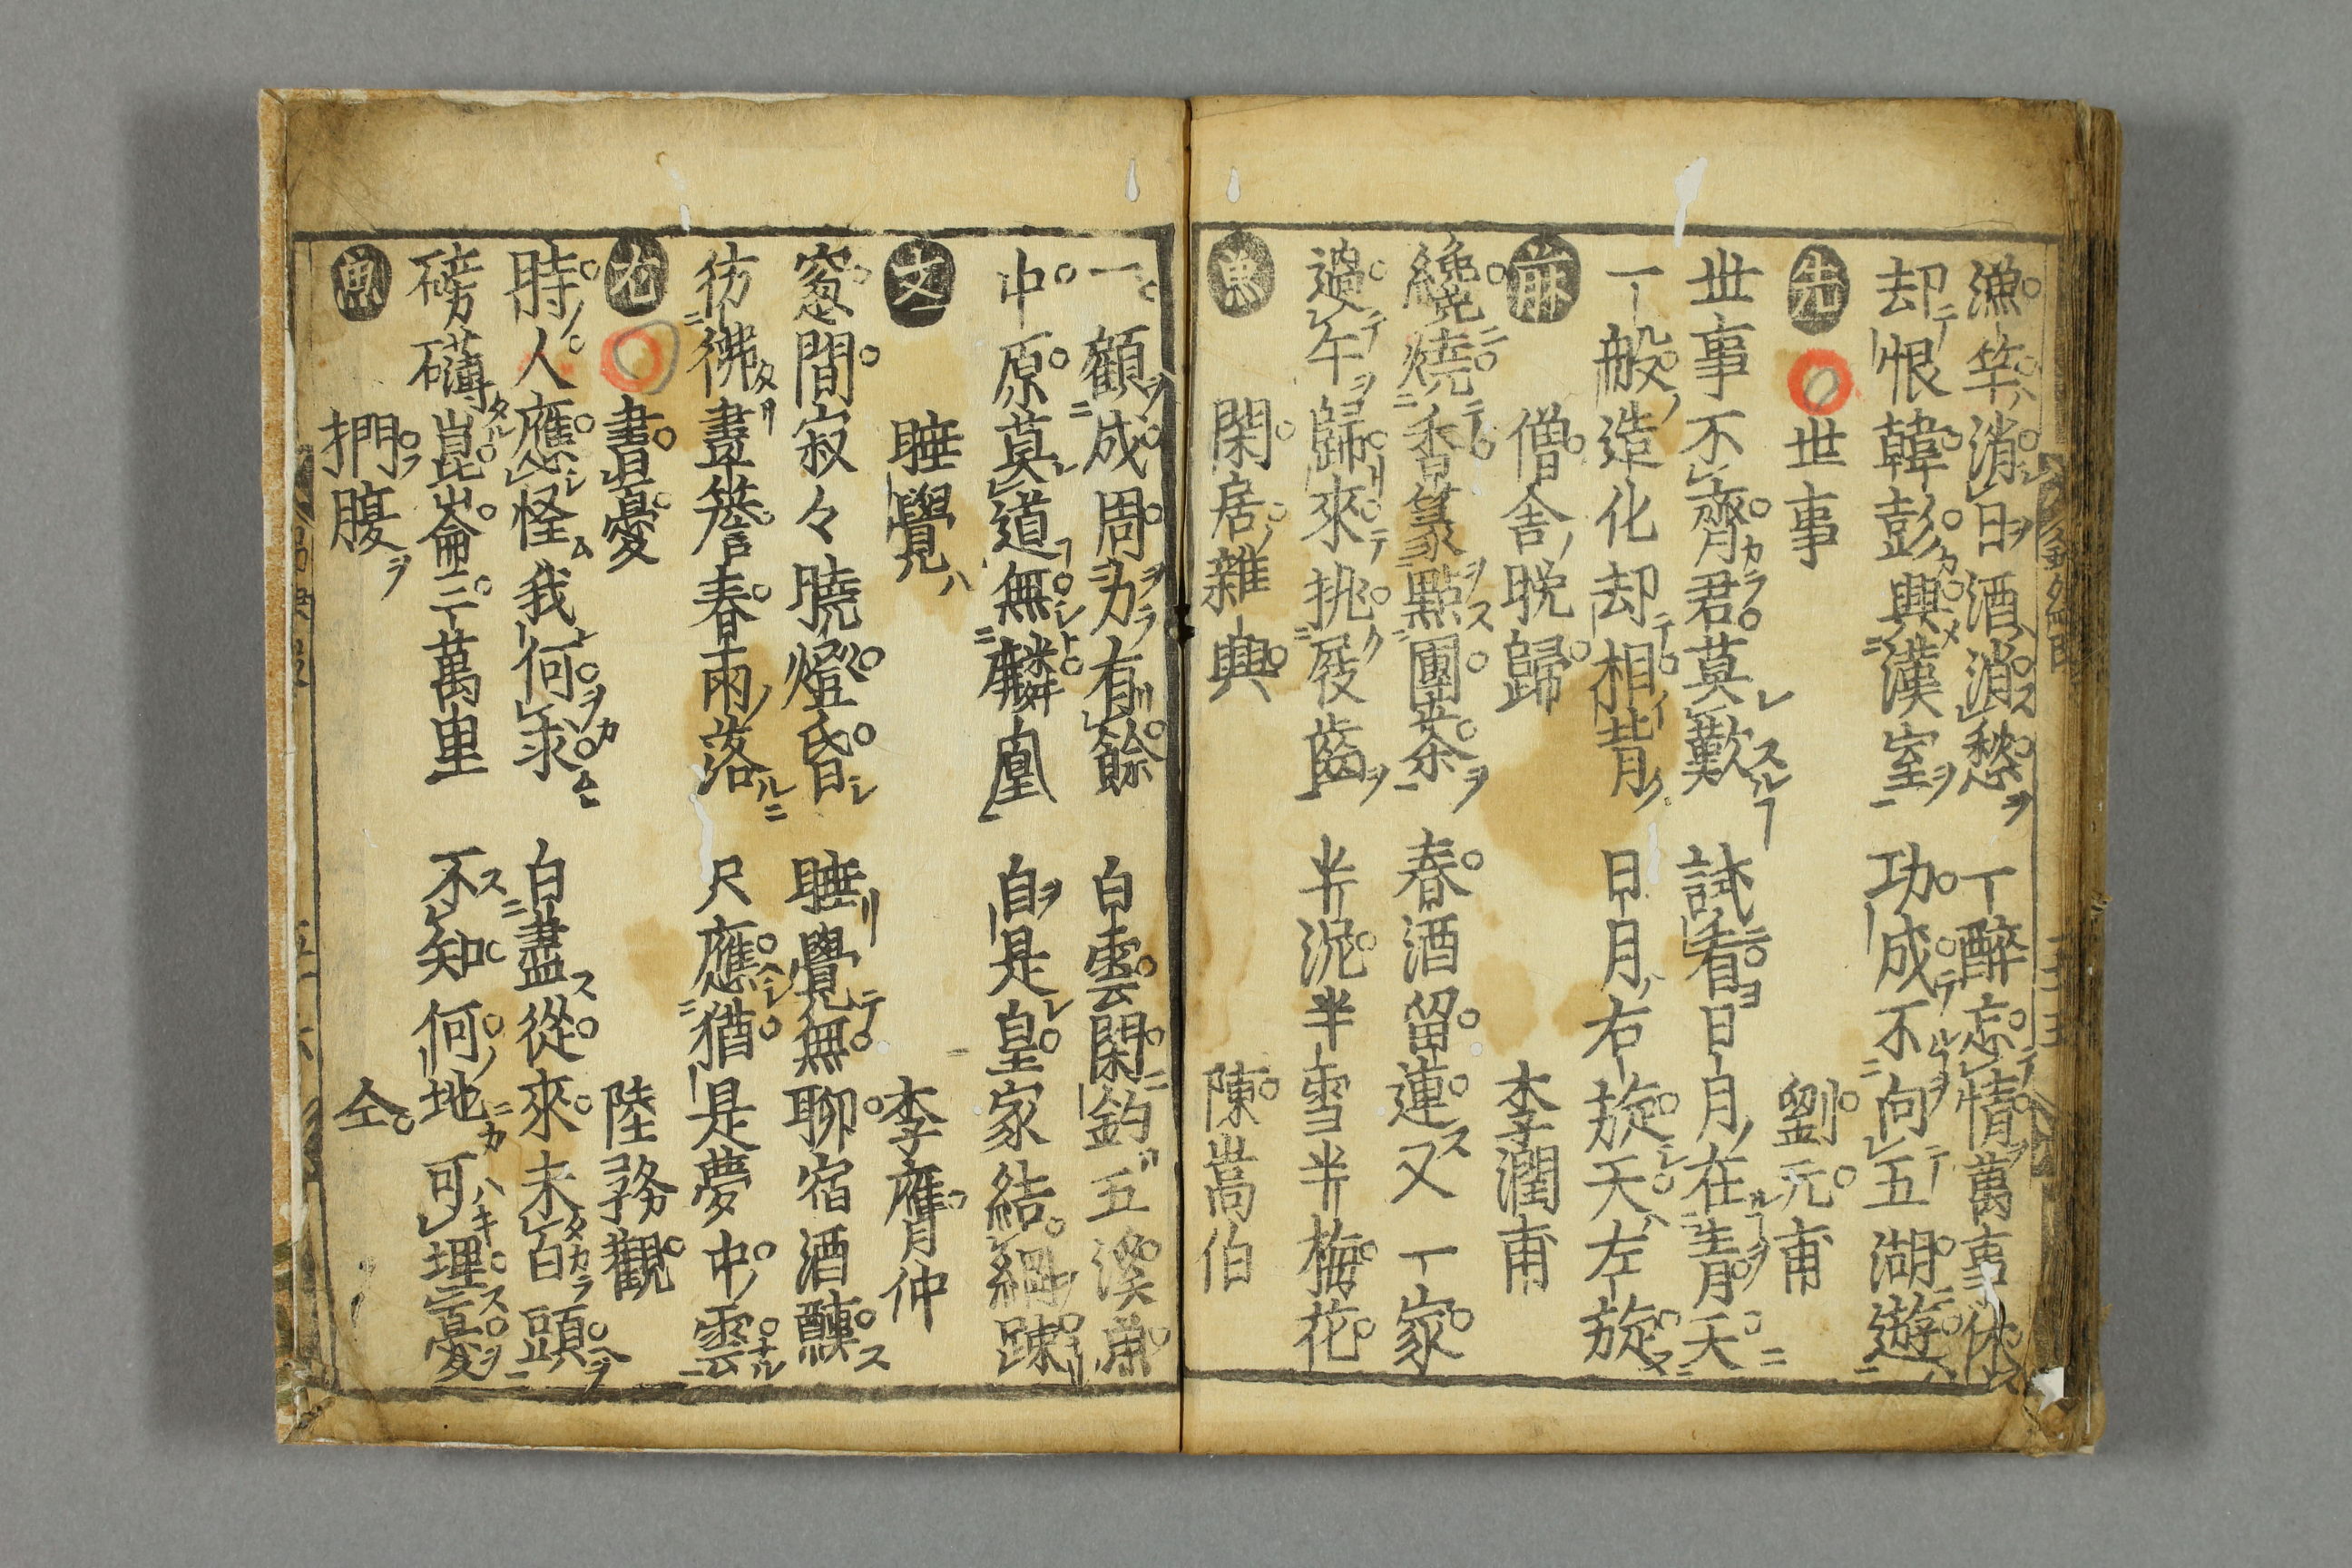 漁竿消日酒消愁　一醉忘情萬事休
却恨韓彭興漢室　功成不向五湖遊
先　世事　劉元甫
世事不齊君莫歎　試看日月在青天
一般造化却相背　日月右旋天左旋
麻　僧舎晩歸　李潤甫
纔燒香篆點團茶　春酒留連又一家
過午歸來挑屐齒　半泥半雪半梅花
魚　閑居雜興　陳嵩伯
一顧成周力有餘　白雲閑釣五溪魚
中原莫道無麟凰　自是皇家結綱踈
文　睡覺　李膺仲
窓間寂々曉燈昏　睡覺無聊宿酒醺
彷彿畫簷春雨落　只應猶是夢中雲
尤　書憂　陸務觀
時人應怪我何求　白盡從來未白頭
磅礴崑崙三萬里　不知何地可埋憂
魚　捫腹　仝